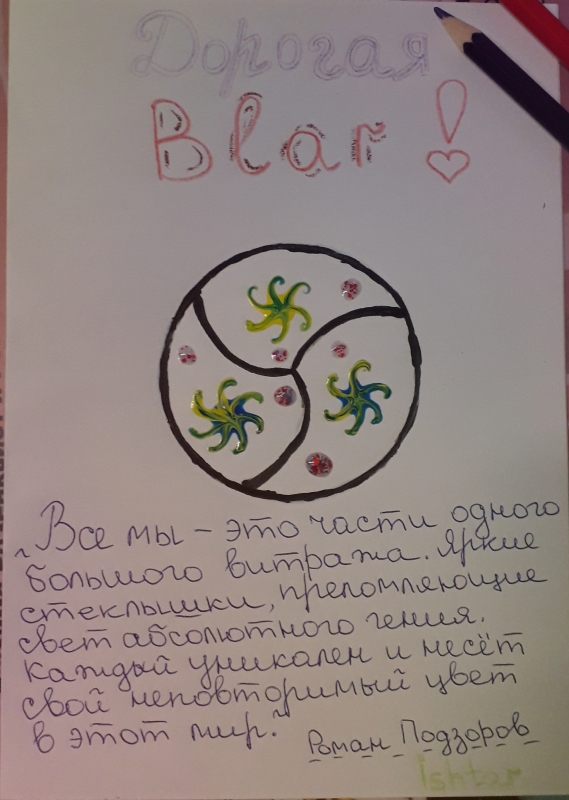 Дорогая
Blar!
"Все мы - это части одного
большого витража. Яркие
стеклышки, преломляющие
свет абсолютного гения.
Каждый уникален и несёт
свой неповторимый цвет
в этот мир."
Роман Подзоров
Ishtar